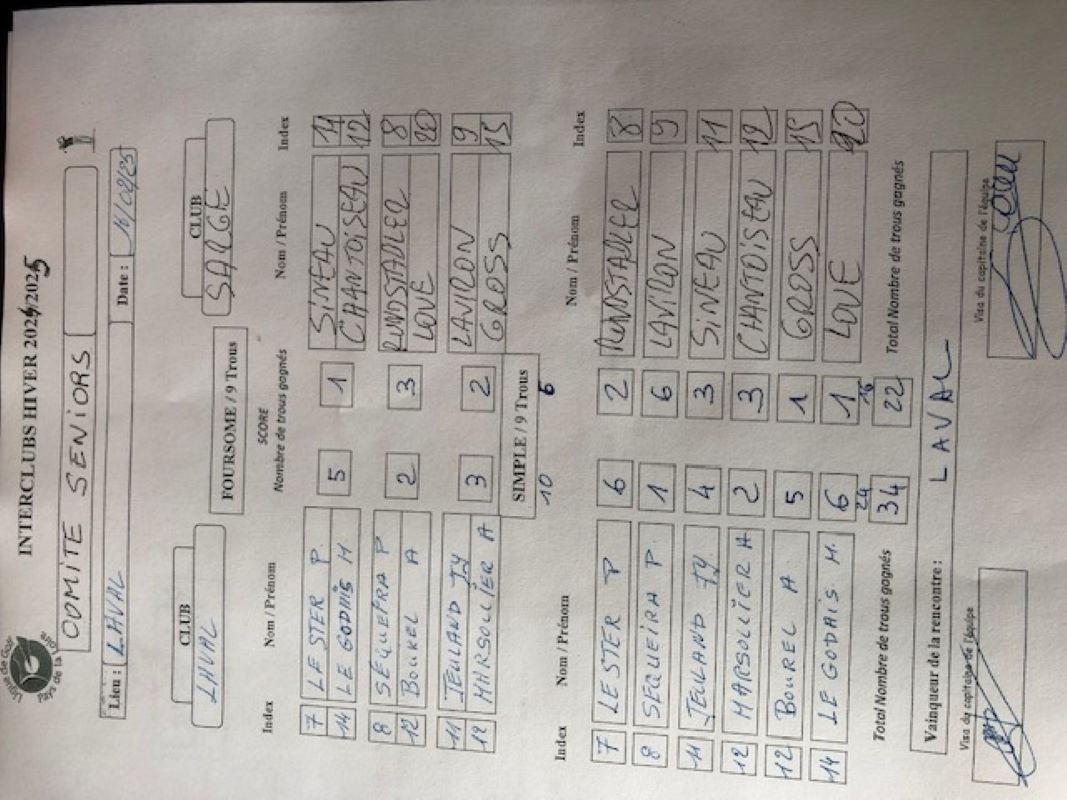 Ligue de Golf
Pays de la Loire
INTERCLUBS HIVER 2024/2025
COMITE SENIORS
Lieu : LAVAL Date : 11/02/25
CLUB CLUB
LAVAL SARGE
FOURSOME / 9 Trous
SCORE
Index Nom / Prénom Nombre de trous gagnés Nom / Prénom Index
7 LE STER P. 5 1 SINEAU 11
14 LE GODAIS H CHANTOISEAU 12
8 SEQUEIRA P 2 3 RUNDSTADLER 8
12 BOUREL A LOVE 20
11 JEULAND JY 3 2 LAVIRON 9
12 MARSOLLIER A GROSS 15
SIMPLE / 9 Trous
10 6
Index Nom / Prénom Nom / Prénom Index
7 LESTER P 6 2 RUNDSTADLER 8
8 SEQUEIRA P. 1 6 LAVIRON 9
11 JEULAND JY 4 3 SINEAU 11
12 MARSOLLIER A 2 3 CHANTOISEAU 12
12 BOUREL A. 5 1 GROSS 15
14 LE GODAIS H. 6 1 LOVE 20
24 16
Total Nombre de trous gagnés 34 22 Total Nombre de trous gagnés
Vainqueur de la rencontre : LAVAL
Visa du capitaine de l'équipe Visa du capitaine de l'équipe